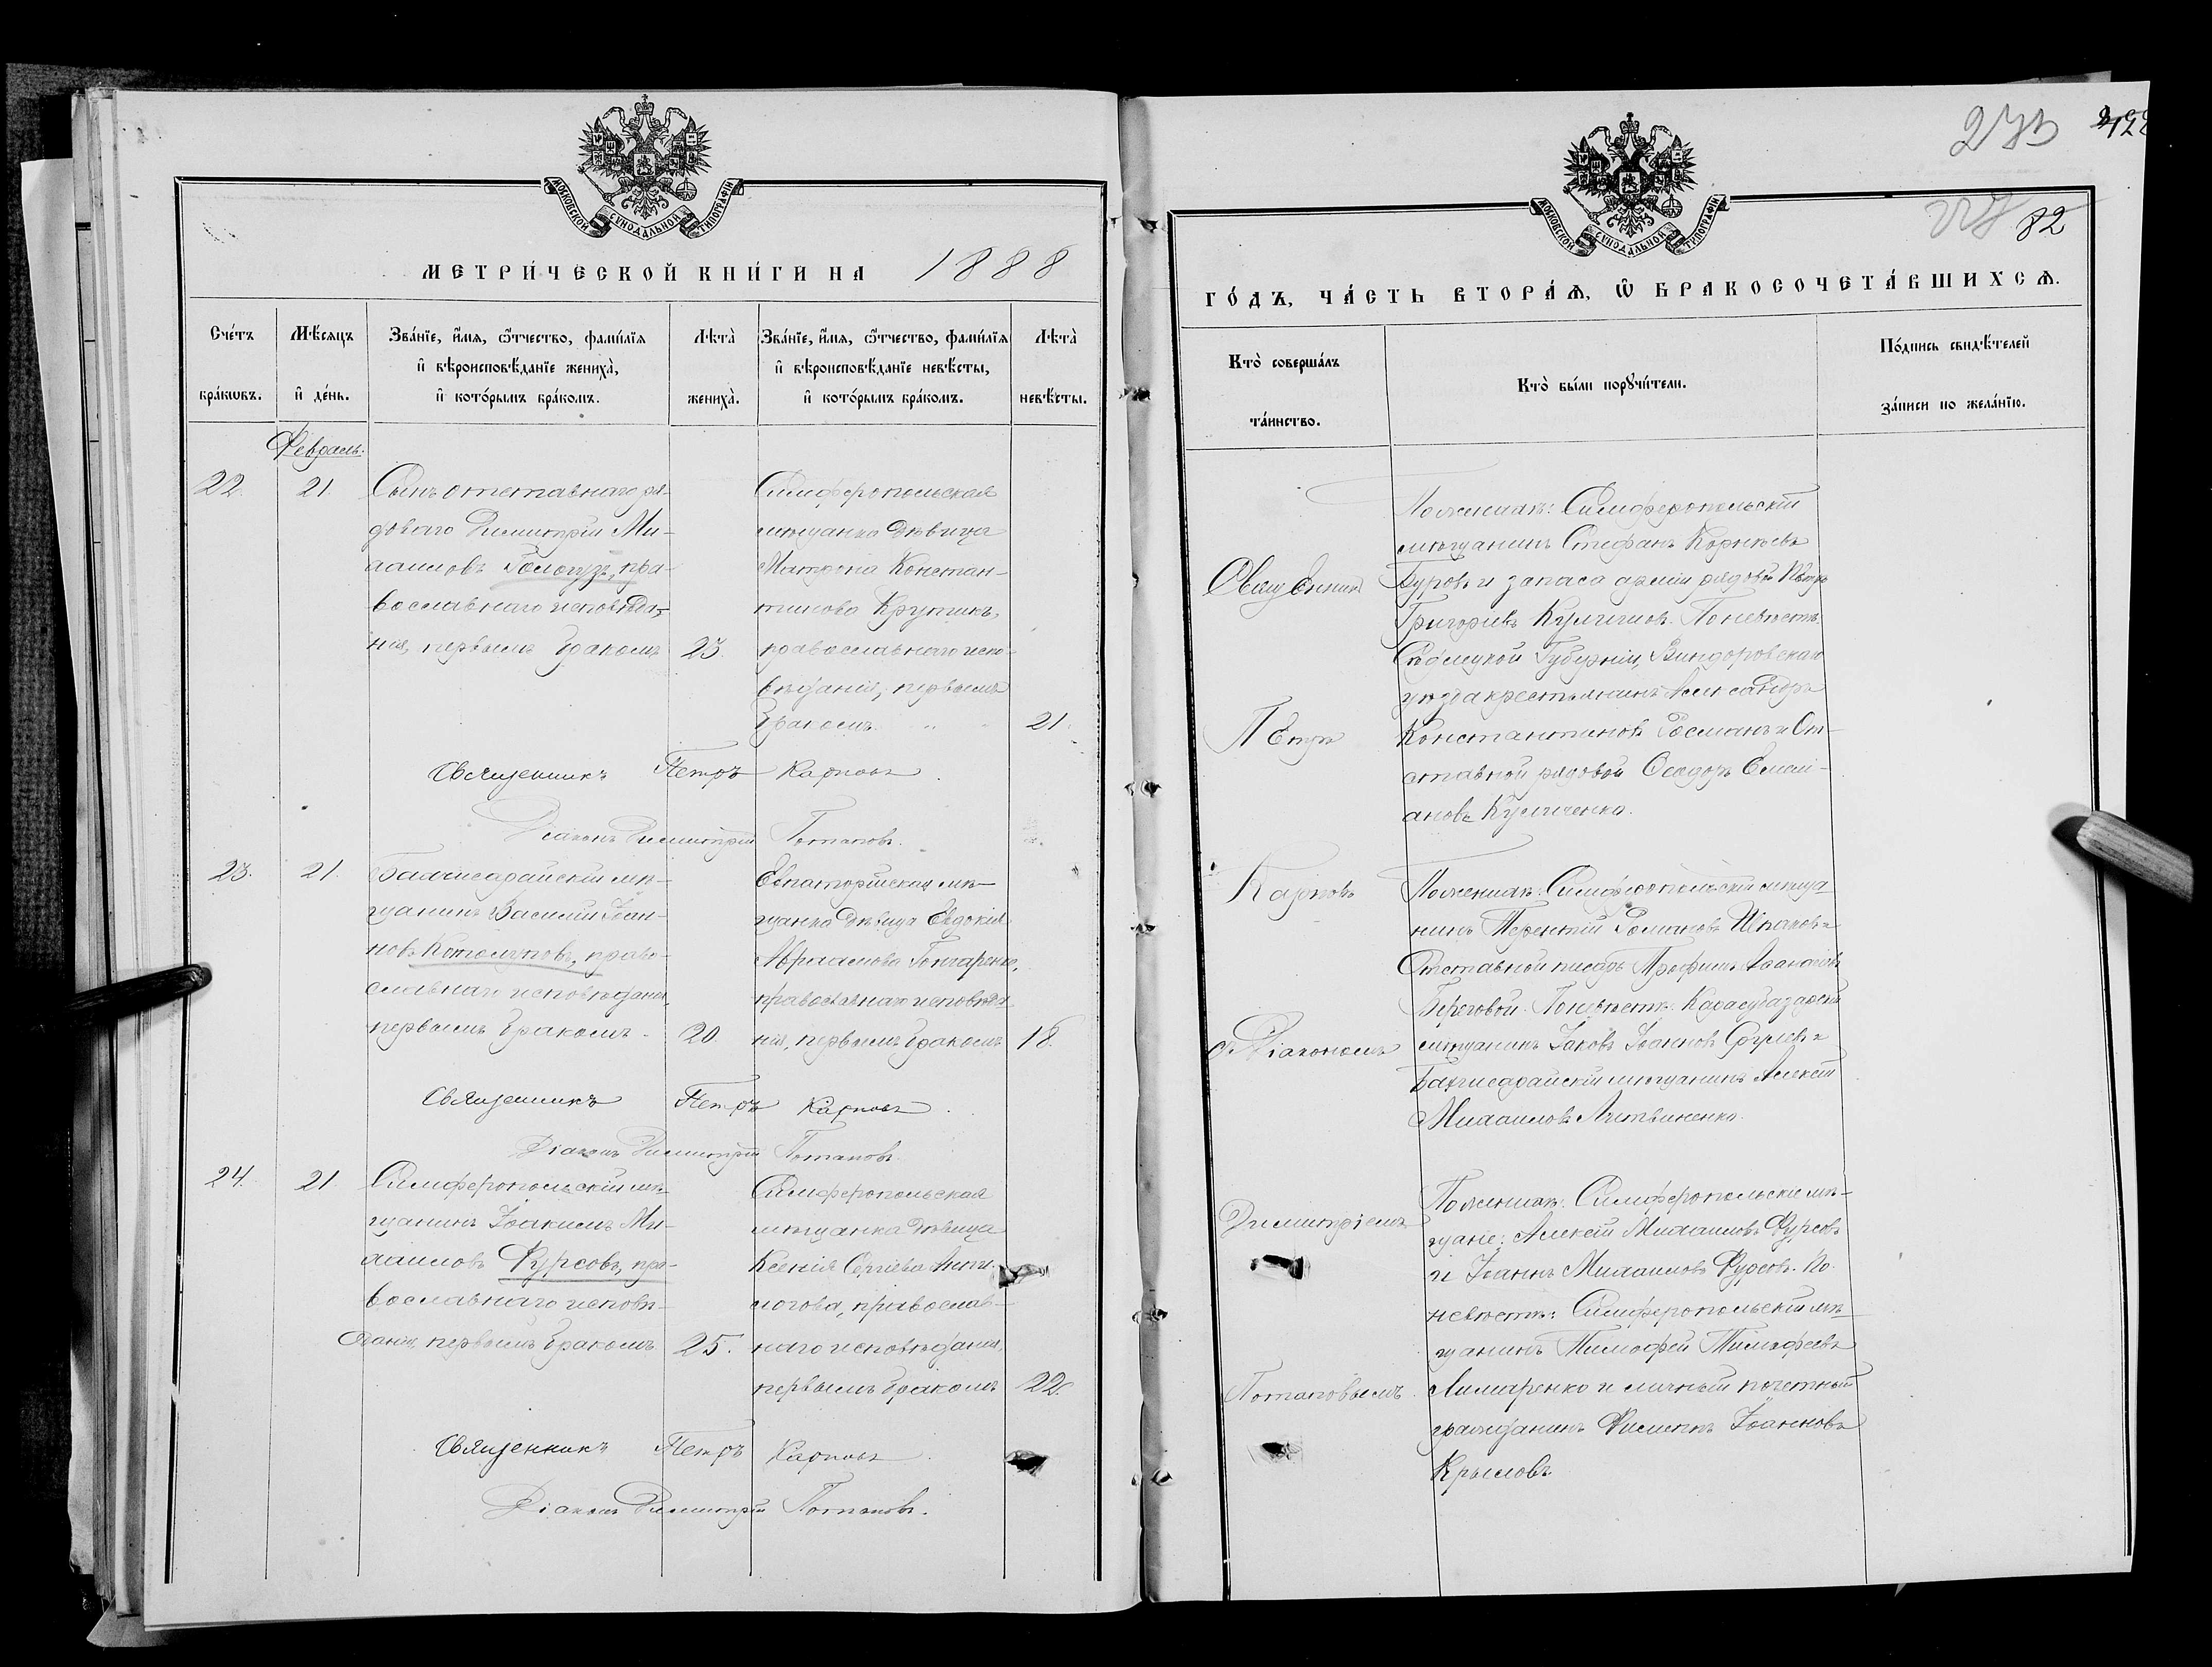 МОСКОВСКОЙ СѴНОДАЛЬНОЙ ТИПОГРАФІИ
МЕТРИ́ЧЕСКОЙ КНИ́ГИ НА 1888
Сче́тъ бра́кωвъ.
Мѣ́сяцъ и҆ де́нь.
Зва́нїе, и҆́мѧ, ѻ҆́тчество, фами́лїѧ
и҆ вѣроисповѣ́данїе жениха̀,
и҆ кото́рымъ бра́комъ.
Лѣта̀ жениха̀.
Зва́нїе, и҆́мѧ, ѻ҆́тчество, фами́лїѧ
и҆ вѣроисповѣ́данїе невѣ́сты,
и҆ кото́рымъ бра́комъ.
Лѣта̀ невѣ́сты.
Февраль.
22. 21.
Сынъ отставнаго ря-
доваго Димитрій Ми-
хаиловъ пра-
вославнаго исповѣда-
нія, первымъ бракомъ 23.
Симферопольская
мѣщанка дѣвица
Матрона Констан-
тинова Крупикъ,
православнаго испо-
вѣданія, первымъ
бракомъ 21.
Священникъ Петръ Карповъ
Діаконъ Димитрій Потаповъ.
23. 21.
Бахчисарайскій мѣ-
щанинъ Василій Іоан-
новъ Котолуповъ, право-
славнаго исповѣданія,
первымъ бракомъ 20.
Евпаторійская мѣ-
щанка дѣвица Евдокія
Авраамова Гончаренко,
православнаго исповѣда-
нія, первымъ бракомъ 18.
Священникъ Петръ Карповъ
Діаконъ Димитрій Потаповъ.
24. 21
Симферопольскій мѣ-
щанинъ Іоакимъ Ми-
хаиловъ Фурсовъ, пра-
вославнаго исповѣ-
данія, первымъ бракомъ 25.
Симферопольская
мѣщанка дѣвица
Ксенія Сергіева
православ-
наго исповѣданія,
первымъ бракомъ 22.
Священникъ Петръ Карповъ
Діаконъ Димитрій Потаповъ.
82
МОСКОВСКОЙ СѴНОДАЛЬНОЙ ТИПОГРАФІИ
ГО́ДЪ, ЧА́СТЬ ВТОРА́Ѧ, Ѽ БРАКОСОЧЕТА́ВШИХСѦ.
Кто̀ соверша́лъ та́инство.
Кто̀ бы́ли порꙋчи́тели.
По́дпись свидѣ́телей за́писи по жела́нїю.
Священникъ
Петръ
Карповъ
съ Діакономъ
Димитріемъ
Потаповымъ.
По женихѣ: Симферопольскій
мѣщанинъ Стефанъ Корнѣевъ
Буровъ и запаса арміи рядовой Петръ
Григорьевъ По невѣстѣ:
Сѣдлецкой Губерніи,
уѣзда крестьянинъ Александръ
Константиновъ и От-
ставной рядовой Ѳеодоръ Емели-
ановъ Куличенко.
По женихѣ: Симферопольскій мѣща-
нинъ Терентій Романовъ и
Отставной писарь Трофимъ
Береговой. По невѣстѣ: Карасубазарскій
мѣщанинъ Іаковъ Іоанновъ и
Бахчисарайскій мѣщанинъ Алексій
Михаиловъ Литвиненко.
По женихѣ: Симферопольскіе мѣ-
щане: Алексій Михаиловъ Фурсовъ
и Іоаннъ Михаиловъ Фурсовъ. По
невѣстѣ: Симферопольскій мѣ-
щанинъ Тимофей Тимофеевъ
Лимаренко и личный почетный
гражданинъ Филиппъ Іоанновъ
Крыловъ.